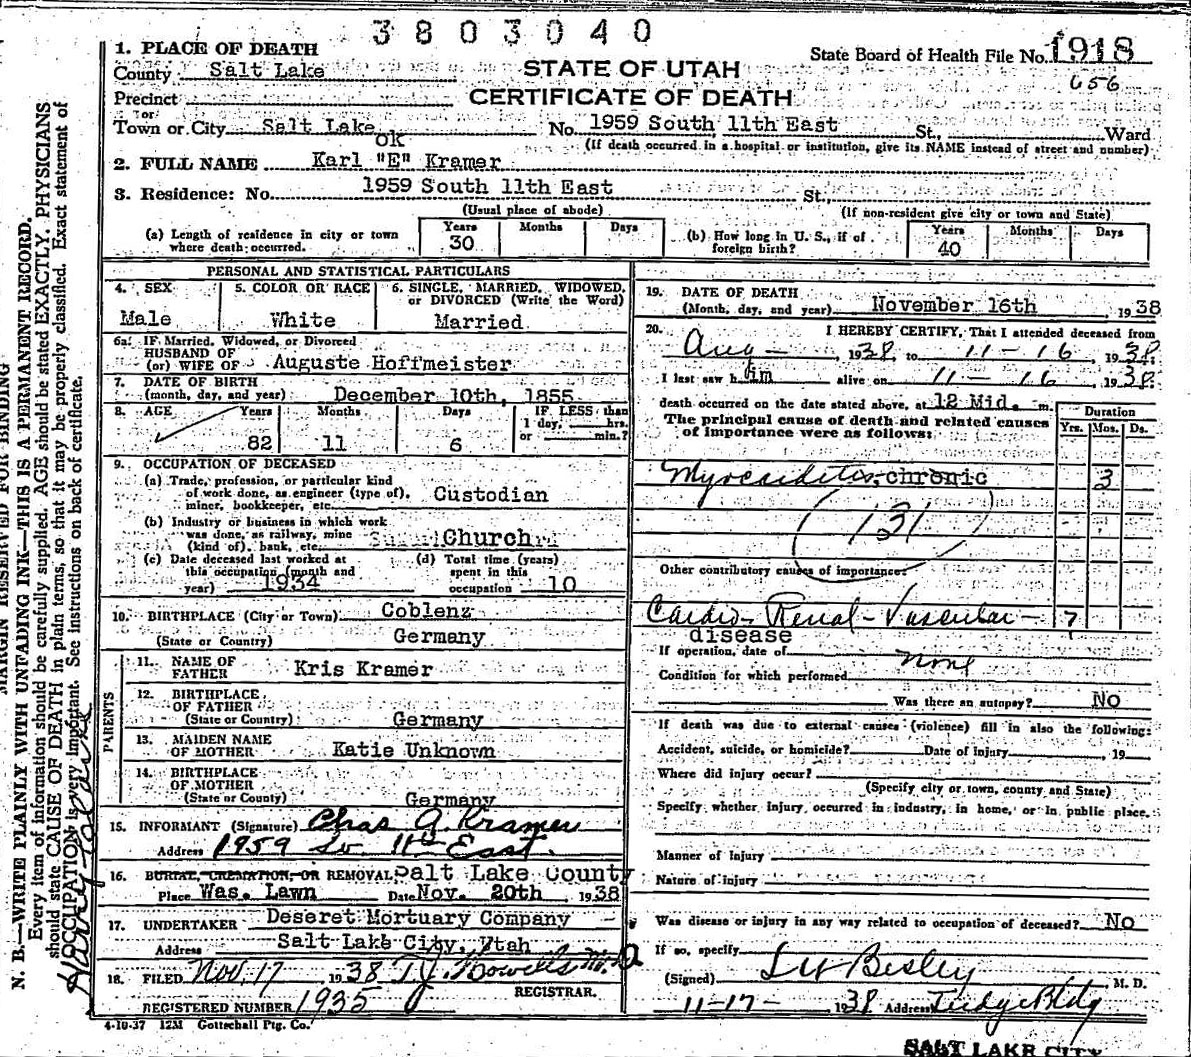 3803040
1. PLACE OF DEATH
State Board of Health File No. 1918
County Salt Lake
STATE OF UTAH
656
Precinct
CERTIFICATE OF DEATH
or
Town or City Salt Lake No. 1959 South 11th East St., Ward
(If death occurred in a hospital or institution, give its NAME instead of street and number)
ok
2. FULL NAME Karl "E" Kramer
3. Residence: No. 1959 South 11th East St.,
(Usual place of abode)
(If non-resident give city or town and State)
(a) Length of residence in city or town where death occurred. Years 30 Months Days
(b) How long in U. S., if of foreign birth? Years 40 Months Days
PERSONAL AND STATISTICAL PARTICULARS
4. SEX
Male
5. COLOR OR RACE
White
6. SINGLE, MARRIED, WIDOWED,
or DIVORCED (Write the Word)
Married
6a. IF Married, Widowed, or Divorced
HUSBAND OF
(or) WIFE OF Auguste Hoffmeister
7. DATE OF BIRTH
(month, day, and year) December 10th, 1855
8. AGE Years Months Days IF LESS than
1 day, hrs.
or min.?
82 11 6
9. OCCUPATION OF DECEASED
(a) Trade, profession, or particular kind
of work done, as engineer (type of),
miner, bookkeeper, etc. Custodian
(b) Industry or business in which work
was done, as railway, mine
(kind of), bank, etc. Church
(c) Date deceased last worked at
this occupation (month and
year) 1934
(d) Total time (years)
spent in this
occupation 10
10. BIRTHPLACE (City or Town) Coblenz
(State or Country) Germany
PARENTS
11. NAME OF
FATHER Kris Kramer
12. BIRTHPLACE
OF FATHER
(State or Country) Germany
13. MAIDEN NAME
OF MOTHER Katie Unknown
14. BIRTHPLACE
OF MOTHER
(State or County) Germany
15. INFORMANT (Signature) Chas A. Kramer
Address 1959 So. 11th East.
16. BURIAL, CREMATION, OR REMOVAL Salt Lake County
Place Was. Lawn Date Nov. 20th 1938
17. UNDERTAKER Deseret Mortuary Company
Address Salt Lake City, Utah
18. FILED Nov. 17 1938 T.J. Howells M.D.
REGISTRAR.
REGISTERED NUMBER 1935
4-10-37 12M Gottschall Ptg. Co.
19. DATE OF DEATH
(Month, day, and year) November 16th 1938
20. I HEREBY CERTIFY, That I attended deceased from
Aug - 1938, to 11 - 16, 1938.
I last saw him alive on 11 - 16, 1938.
death occurred on the date stated above, at 12 Mid. m.
The principal cause of death and related causes
of importance were as follows:
Duration
Yrs. Mos. Ds.
Myocarditis, chronic 3
(131)
Other contributory causes of importance:
Cardio-Renal-Vascular- 7
disease
If operation, date of none
Condition for which performed
Was there an autopsy? No
If death was due to external causes (violence) fill in also the following:
Accident, suicide, or homicide? Date of injury 19
Where did injury occur?
(Specify city or town, county and State)
Specify whether injury occurred in industry, in home, or in public place.
Manner of injury
Nature of injury
Was disease or injury in any way related to occupation of deceased? No
If so, specify
(Signed) Besley M. D.
11-17- 1938 Address Judge Bldg
SALT LAKE CITY
MARGIN RESERVED FOR BINDING
N. B.—WRITE PLAINLY WITH UNFADING INK—THIS IS A PERMANENT RECORD.
Every item of information should be carefully supplied. AGE should be stated EXACTLY. PHYSICIANS
should state CAUSE OF DEATH in plain terms, so that it may be properly classified. Exact statement of
OCCUPATION is very important. See instructions on back of certificate.